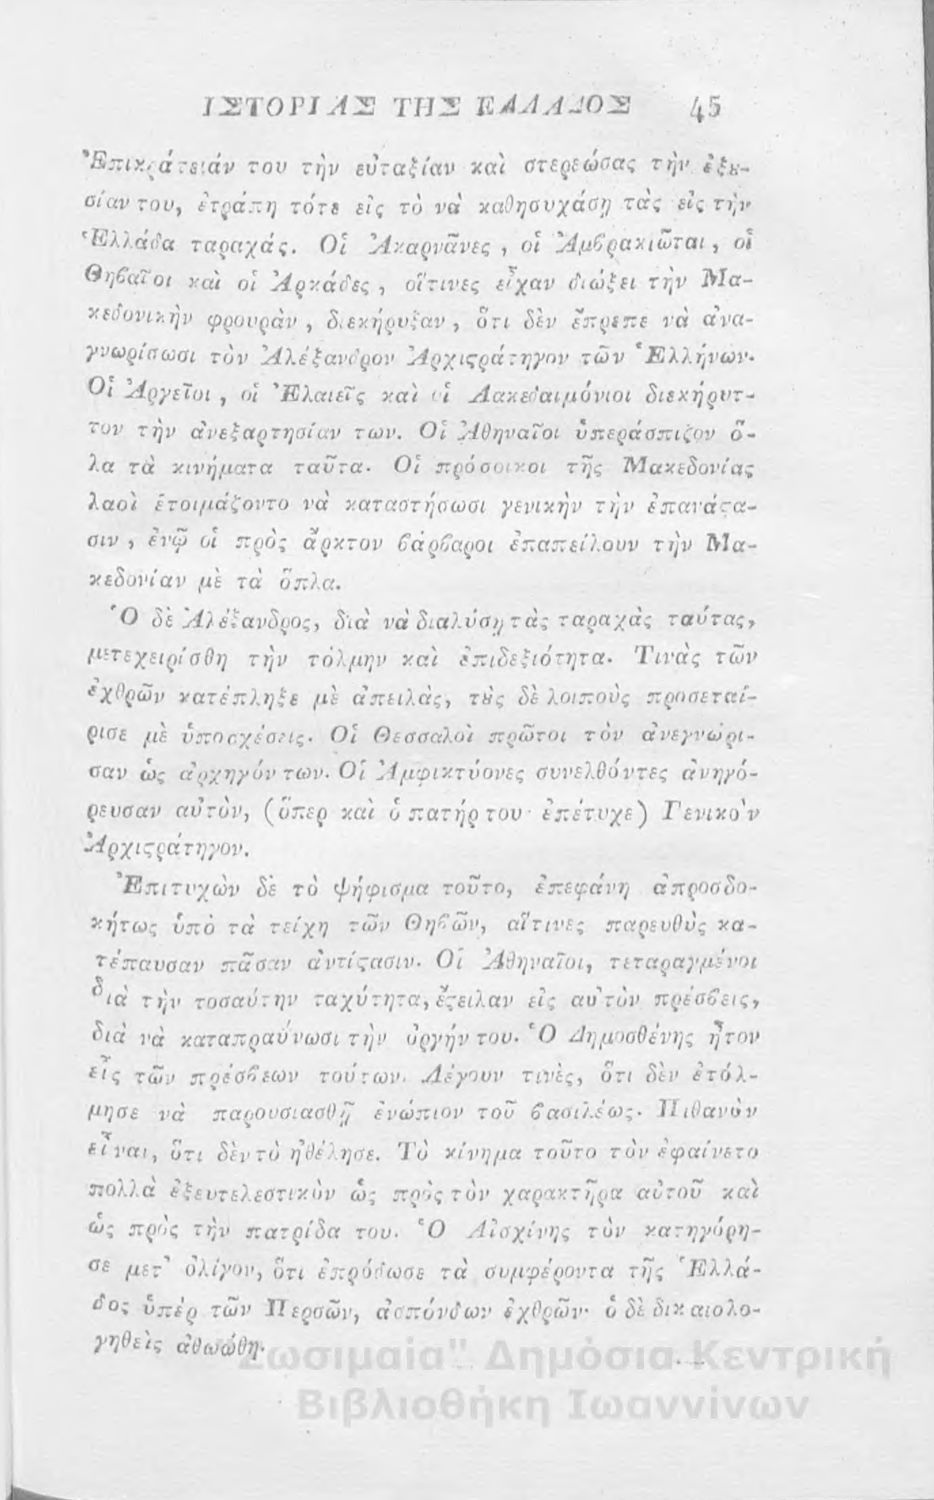 ΙΣΤΟΡΙΑΣ ΤΗΣ ΕΛΛΑΔΟΣ 45
Ἐπικράτειάν του τὴν εὐταξίαν καὶ στερεώσας τὴν ἐξȣ-
σίαν του, ἐτράπη τότε εἰς τὸ νὰ καθησυχάσῃ τὰς εἰς τὴν
Ἑλλάδα ταραχάς. Οἱ Ἀκαρνᾶνες, οἱ Ἀμβρακιῶται, οἱ
Θηβαῖοι καὶ οἱ Ἀρκάδες, οἵτινες εἶχαν διώξει τὴν Μα-
κεδονικὴν φρουρὰν, διεκήρυξαν, ὅτι δὲν ἔπρεπε νὰ ἀνα-
γνωρίσωσι τὸν Ἀλέξανδρον Ἀρχιϛράτηγον τῶν Ἑλλήνων.
Οἱ Ἀργεῖοι, οἱ Ἐλαιεῖς καὶ οἱ Λακεδαιμόνιοι διεκήρυτ-
τον τὴν ἀνεξαρτησίαν των. Οἱ Ἀθηναῖοι ὑπεράσπιζον ὅ-
λα τὰ κινήματα ταῦτα. Οἱ πρόσοικοι τῆς Μακεδονίας
λαοὶ ἑτοιμάζοντο νὰ καταστήσωσι γενικὴν τὴν ἐπανάϛα-
σιν, ἐνῷ οἱ πρὸς ἄρκτον βάρβαροι ἐπαπείλουν τὴν Μα-
κεδονίαν μὲ τὰ ὅπλα.
Ὁ δὲ Ἀλέξανδρος, διὰ νὰ διαλύσῃ τὰς ταραχὰς ταύτας,
μετεχειρίσθη τὴν τόλμην καὶ ἐπιδεξιότητα. Τινὰς τῶν
ἐχθρῶν κατέπληξε μὲ ἀπειλὰς, τȣ̀ς δὲ λοιποὺς προσεταί-
ρισε μὲ ὑποσχέσεις. Οἱ Θεσσαλοὶ πρῶτοι τὸν ἀνεγνώρι-
σαν ὡς ἀρχηγόν των. Οἱ Ἀμφικτύονες συνελθόντες ἀνηγό-
ρευσαν αὐτὸν, (ὅπερ καὶ ὁ πατήρ του ἐπέτυχε) Γενικὸν
Ἀρχιϛράτηγον.
Ἐπιτυχὼν δὲ τὸ ψήφισμα τοῦτο, ἐπεφάνη ἀπροσδο-
κήτως ὑπὸ τὰ τείχη τῶν Θηβῶν, αἵτινες παρευθὺς κα-
τέπαυσαν πᾶσαν ἀντίϛασιν. Οἱ Ἀθηναῖοι, τεταραγμένοι
διὰ τὴν τοσαύτην ταχύτητα, ἔϛειλαν εἰς αὐτὸν πρέσβεις,
διὰ νὰ καταπραΰνωσι τὴν ὀργήν του. Ὁ Δημοσθένης ἦτον
εἷς τῶν πρέσβεων τούτων. Λέγουν τινὲς, ὅτι δὲν ἐτόλ-
μησε νὰ παρουσιασθῇ ἐνώπιον τοῦ βασιλέως. Πιθανὸν
εἶναι, ὅτι δὲν τὸ ἠθέλησε. Τὸ κίνημα τοῦτο τὸν ἐφαίνετο
πολλὰ ἐξευτελεστικὸν ὡς πρὸς τὸν χαρακτῆρα αὐτοῦ καὶ
ὡς πρὸς τὴν πατρίδα του. Ὁ Αἰσχίνης τὸν κατηγόρη-
σε μετ' ὀλίγον, ὅτι ἐπρόδωσε τὰ συμφέροντα τῆς Ἑλλά-
δος ὑπὲρ τῶν Περσῶν, ἀσπόνδων ἐχθρῶν· ὁ δὲ δικαιολο-
γηθεὶς ἀθωώθη.
Ζωσιμαία" Δημόσια Κεντρική
Βιβλιοθήκη Ιωαννίνων